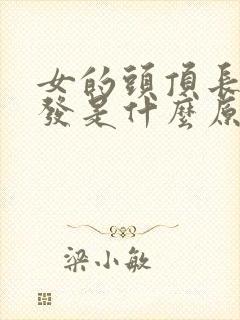 女的頭頂長
發是什麼原
梁小敏